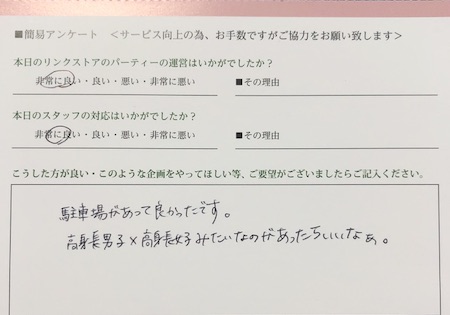 ■簡易アンケート　＜サービス向上の為、お手数ですがご協力をお願い致します＞
本日のリンクストアのパーティーの運営はいかがでしたか？
非常に良い・良い・悪い・非常に悪い　■その理由
本日のスタッフの対応はいかがでしたか？
非常に良い・良い・悪い・非常に悪い　■その理由
こうした方が良い・このような企画をやってほしい等、ご要望がございましたらご記入ください。
駐車場があって良かったです。
高身長男子×高身長女子みたいなのがあったらいいなぁ。